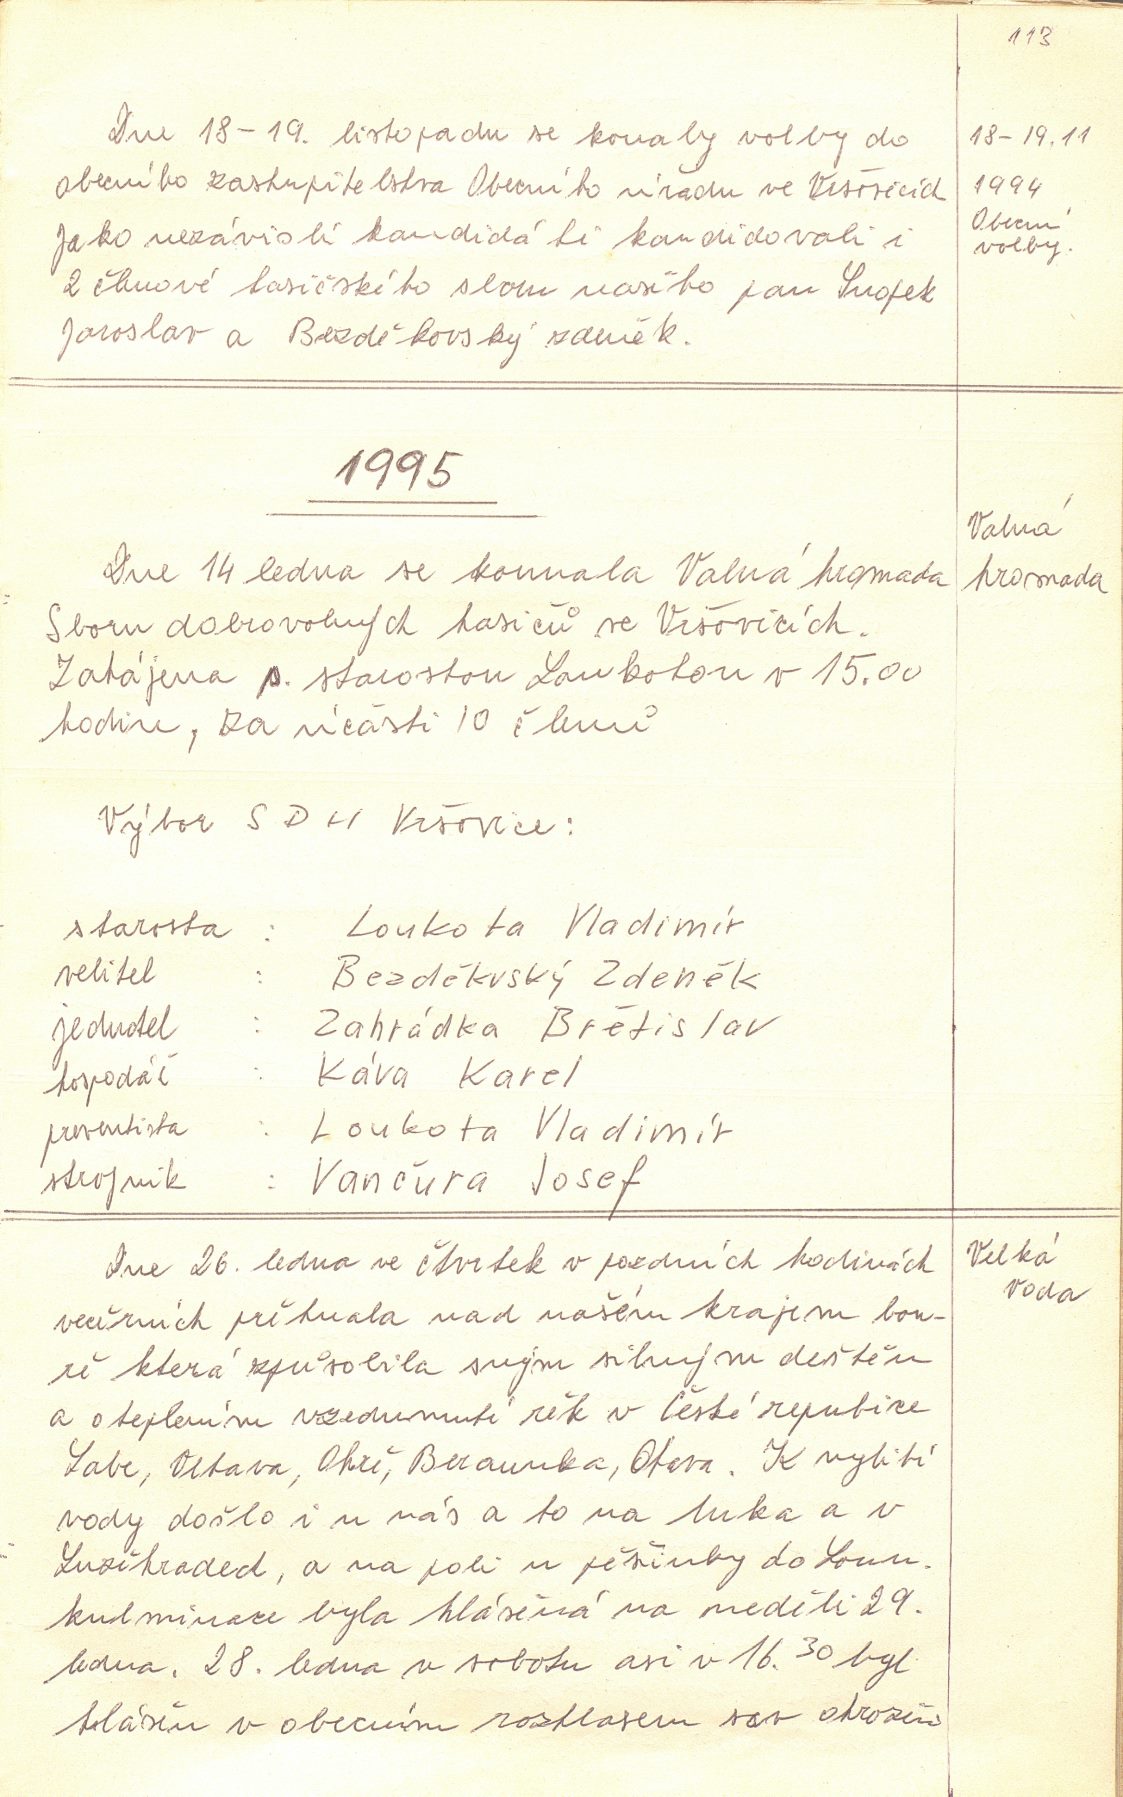 113
Dne 18-19. listopadu se konaly volby do
obecního zastupitelstva Obecního úřadu ve Vršovicích
Jako nezávislí kandidáti kandidovali i
2 členové hasičského sboru našeho pan Šnajek
Jaroslav a Bezděkovský zdeněk.
18-19.11
1994
Obecní
volby.
1995
Dne 14 ledna se konnala Valná hromada
Sboru dobrovolných hasičů ve Vršovicích.
Zahájena p. starostou Loukotou v 15.00
hodin, za účasti 10 členů
Valná
hromada
Výbor SDH Vršovice:
starosta : Loukota Vladimír
velitel : Bezděkvský Zdeněk
jednatel : Zahrádka Břetislav
hospodář : Káva Karel
preventista : Loukota Vladimír
strojník : Vančura Josef
Dne 26. ledna ve čtvrtek v pozdních hodinách
večerních přihnala nad naším krajem bou-
ře která způsobila svým silným deštěm
a oteplením vzedumutí řěk v České repubice
Labe, Vltava, Ohře, Beraunka, Otava. K vylití
vody došlo i u nás a to na luka a v
a na poli u pěšinky do Loun.
kulminace byla hlášená na neděli 29.
ledna. 28. ledna v sobotu asi v 16.30 byl
hlášěn v obecním rozhlasem sav ohrožení
Velká
voda